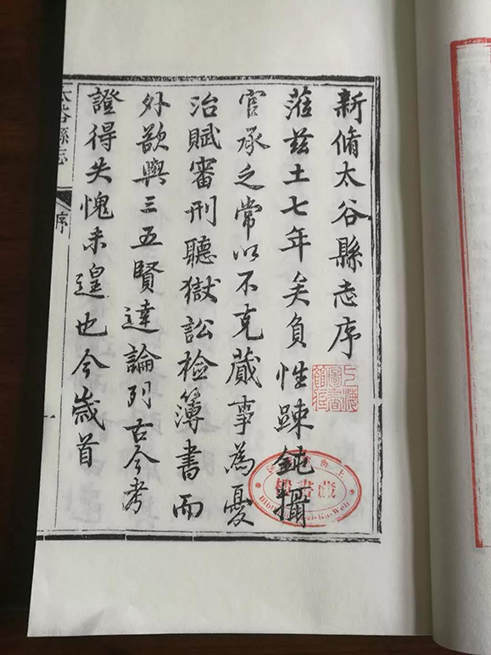 新脩太谷縣志序
蒞茲土七年矣負性踈鈍攝
官承之常以不克蕆事為憂
治賦審刑聽獄訟檢簿書而
外欲與三五賢達論列古今考
證得失愧未遑也今歲首
太谷縣志
序
一
上海圖書館藏
藏書